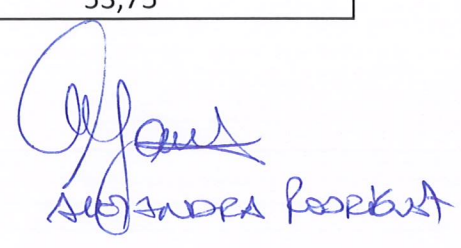 53,75
ALEJANDRA RODRÍGUEZ